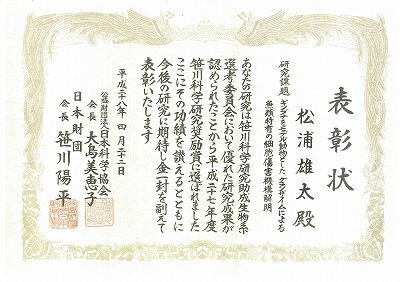 表彰状
松浦雄太殿
研究課題 ギンブナをモデル動物とした グランザイムによる
魚類特有の細胞傷害機構解明
あなたの研究は笹川科学研究助成生物系
選考委員会において優れた研究成果が
認められたことから平成二十七年度
笹川科学研究奨励賞に選ばれました
ここにその功績を讃えるとともに
今後の研究に期待し金一封を副えて
表彰いたします
平成二十八年 四月二十二日
公益財団法人日本科学協会
会長 大島美恵子
日本財団
会長 笹川陽平